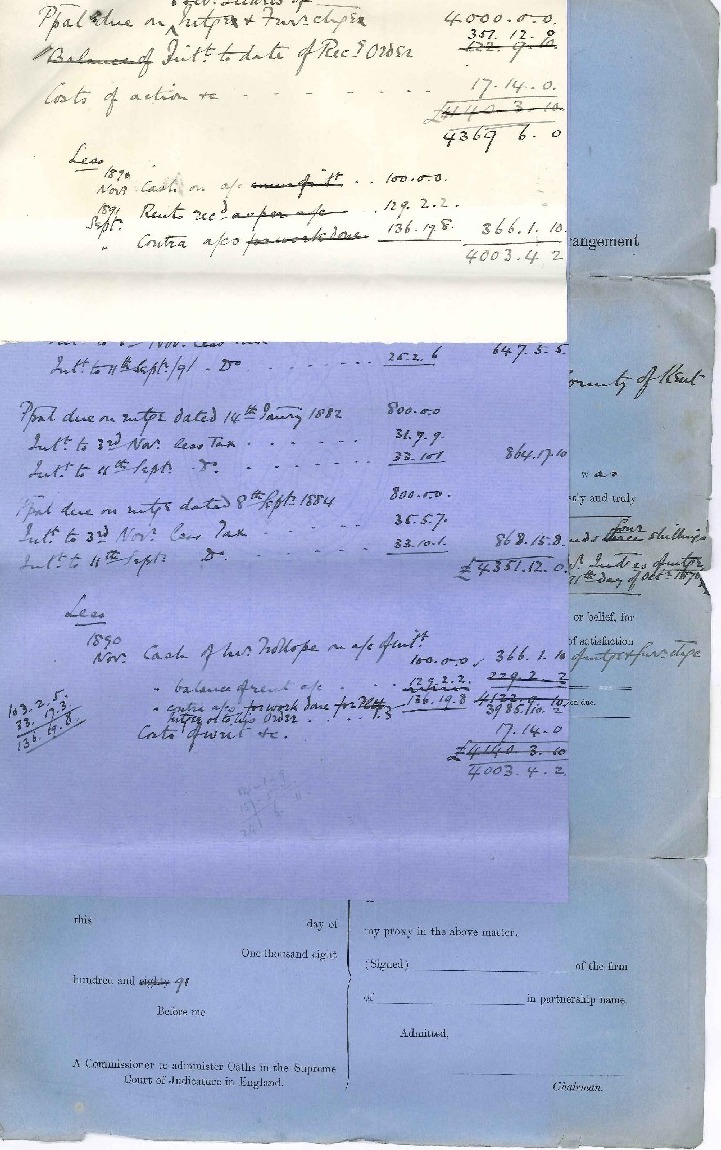 Ppal due on Mtges & Furr charges 4000.0.0.
351.12.0
Balance of Intt. to date of Recg Order 122.9.10
Costs of action &c - - - - - - 17.14.0.
£4140.3.10
4369 6.0
Less
1890
Novr. Cash on a/c .. 100.0.0.
1891
Sept. Rents recd as per a/c .. 129.2.2.
" Contra a/cs for work done 136.19.8. 366.1.10.
4003.4.2
arrangement
Novr. less
Intt. to 11th Sept/91 . Do . . . . . 25.2.6 647.5.5.
County of Kent
Ppal due on mtge dated 14th Janry 1882 800.0.0
Intt. to 3rd Novr. less Tax . . . . . 31.7.9.
Intt. to 11th Sept. Do. . . . . . 33.10.1 864.17.10
and truly
Ppal due on mtge dated 8th Sept. 1884 800.0.0.
four
shillings
Intt. to 3rd Novr. less Tax . . . . 35.5.7.
Intt. to 11th Sept. Do. . . . . 33.10.1. 868.15.8.
£4351.12.0.
11th Day of Octr 1870
Less
or belief, for
of satisfaction
1890
Novr. Cash of Mr. Trollope on a/c of Intt. 100.0.0 366.1.10
of mtge & furr chge
" balance of rent a/c . . . . 129.2.2. 229.2.2
" contra a/cs for work done for 136.19.8 4122.9.10
3985.10.2
103.2.5.
33.17.3.
136.19.8.
Costs of writ &c. 17.14.0
£4140.3.10
4003.4.2
this day of
One thousand eight
hundred and eighty 91
Before me
A Commissioner to administer Oaths in the Supreme
Court of Judicature in England.
my proxy in the above matter.
(Signed) of the firm
of in partnership name.
Admitted,
Chairman.